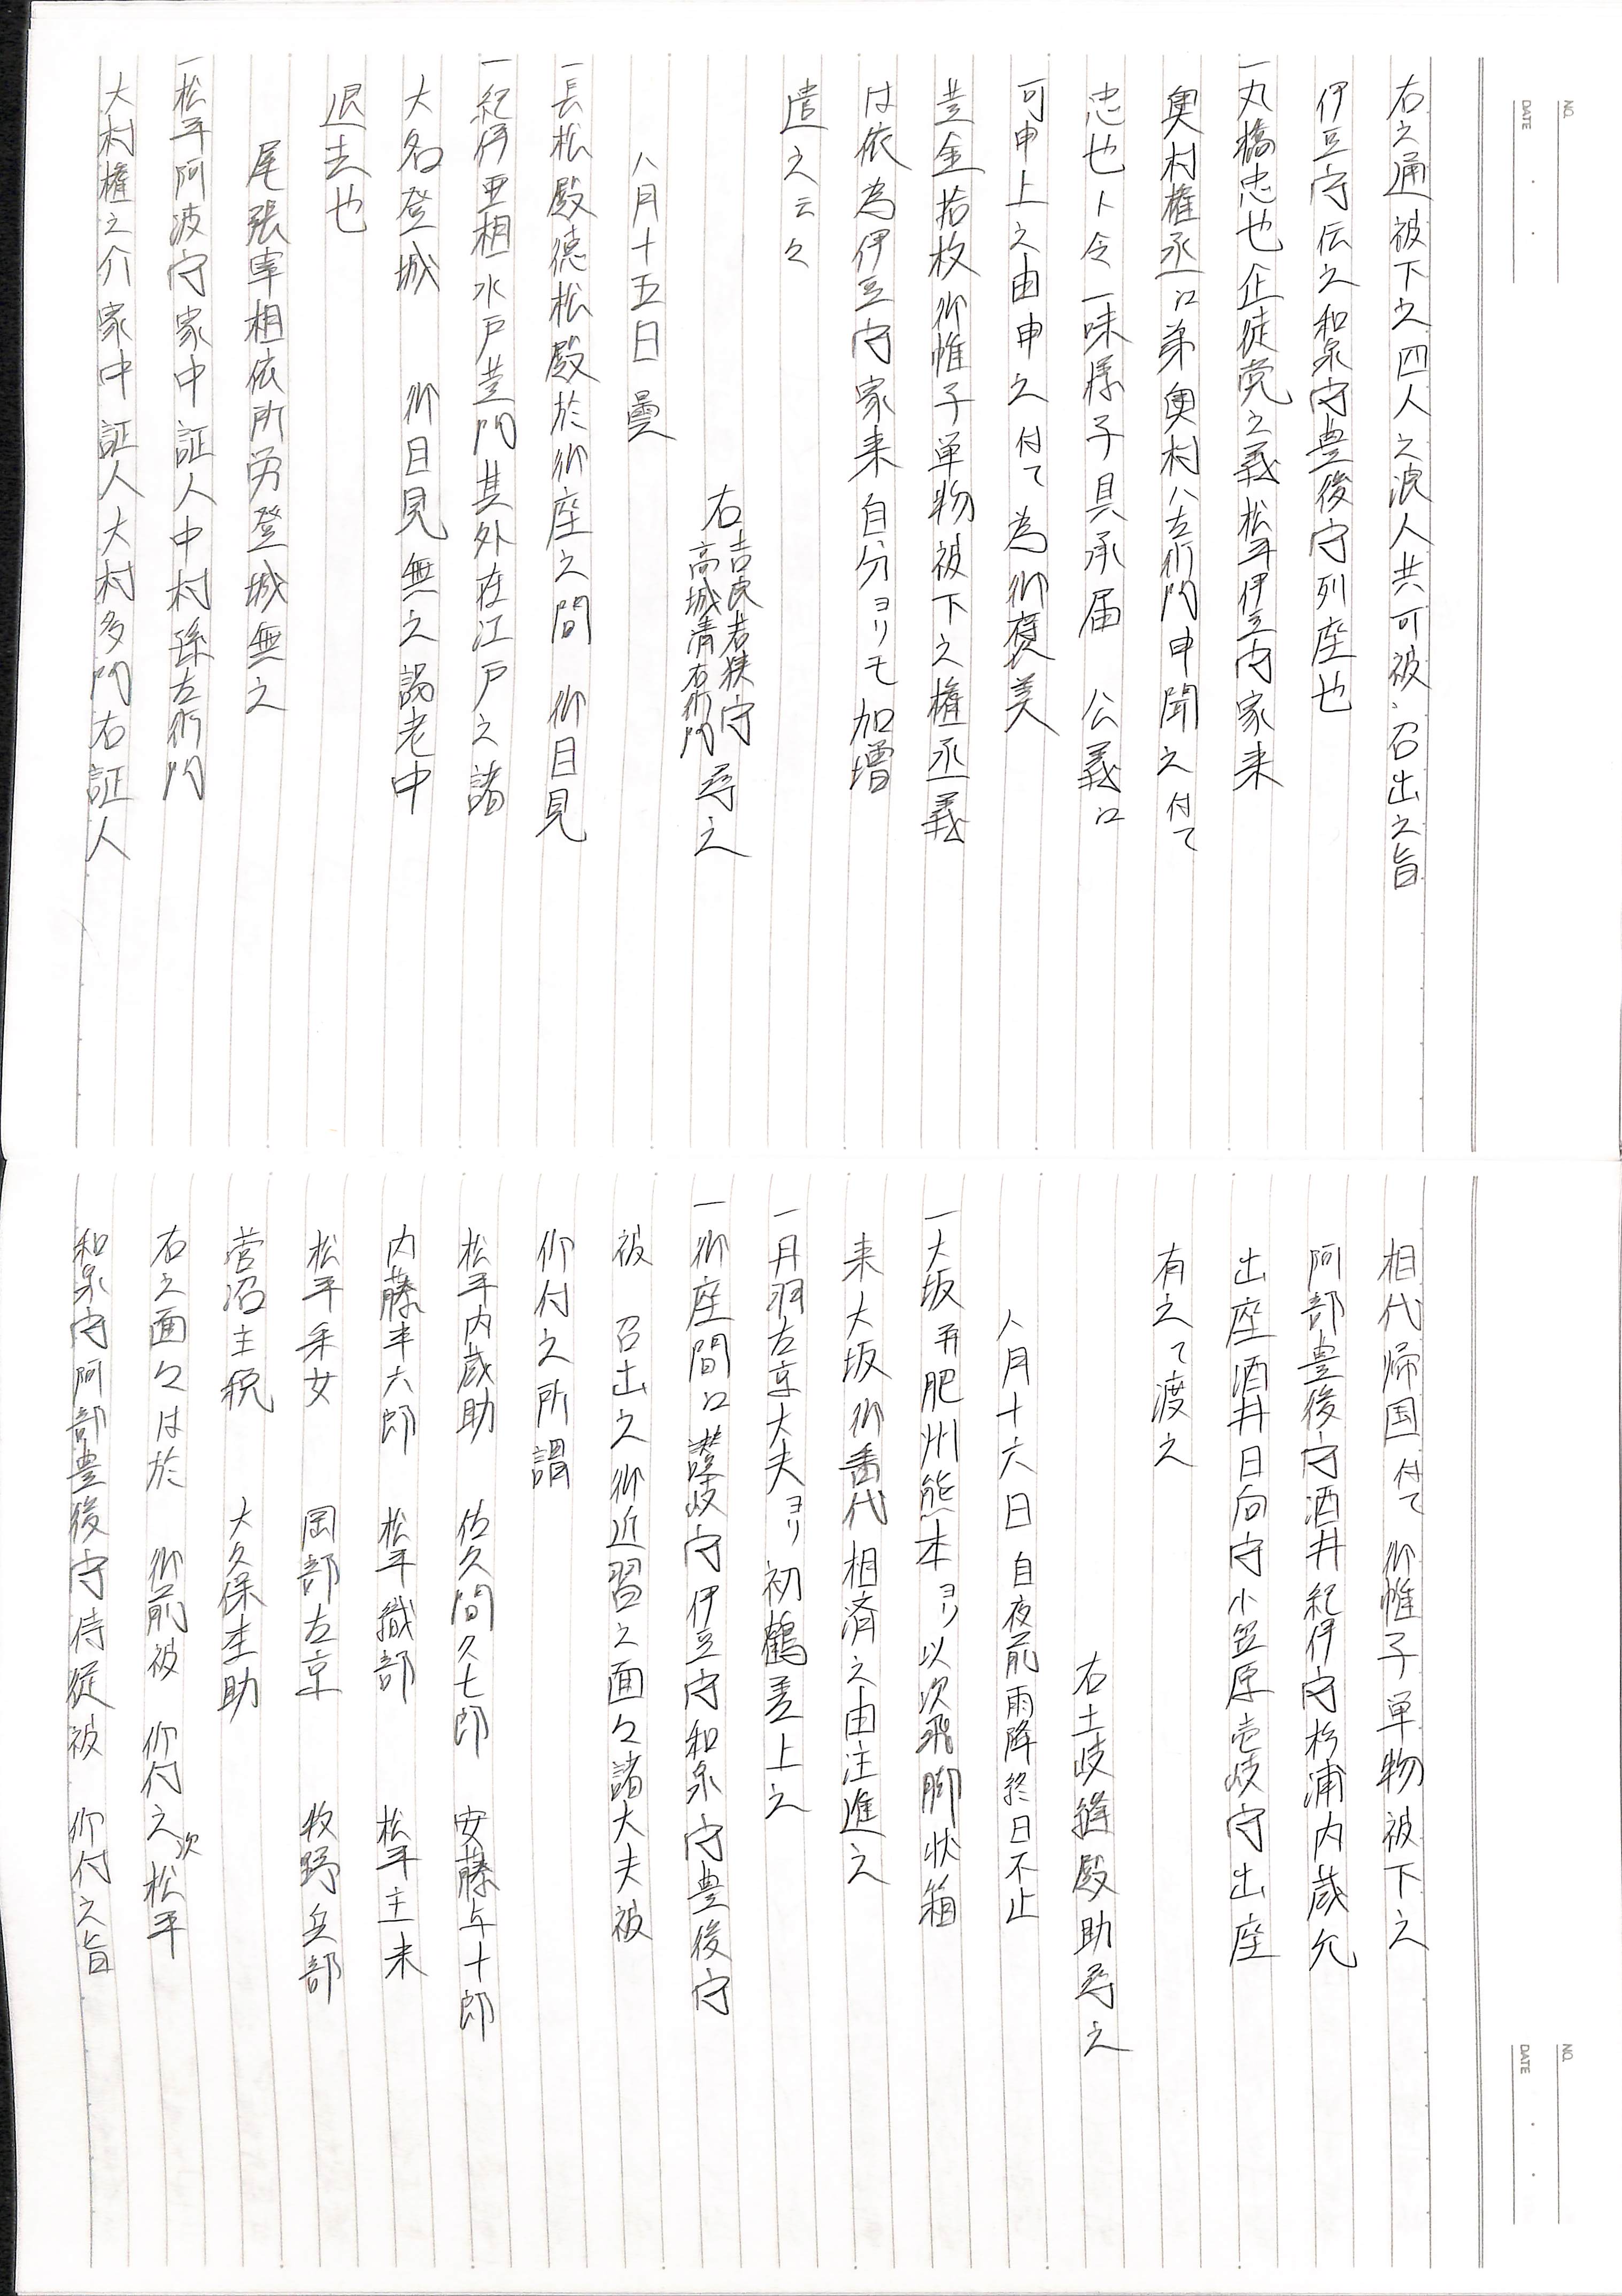 NO.
DATE
右之通被下之四人之浪人共可被召出之旨
伊豆守伝之和泉守豊後守列座也
一丸橋忠也企徒党之義松平伊豆守家来
奥村権丞江弟奥村八左衛門申聞之付て
忠也ト令一味様子具承届 公義江
可申上之由申之付て為御褒美
黄金拾枚御帷子単物被下之権丞義
は依為伊豆守家来自分ヨリモ加増
遣之云々
右吉良若狭守
高城清右衛門 尋之
八月十五日 曇
一長松殿徳松殿於御座之間 御目見
一紀伊亜相水戸黄門其外在江戸之諸
大名登城 御目見無之謁老中
退去也
尾張宰相依所労登城無之
一松平阿波守家中証人中村孫左衛門
大村権之介家中証人大村多門右証人
NO.
DATE
相代帰国付て御帷子単物被下之
阿部豊後守酒井紀伊守杉浦内蔵允
出座酒井日向守小笠原壱岐守出座
有之て渡之
右土岐縫殿助尋之
八月十六日 自夜前雨降終日不止
一大坂并肥州熊本ヨリ以次飛脚状箱
来大坂御番代相済之由注進之
一丹羽左京大夫ヨリ初鶴差上之
一御座間江讃岐守伊豆守和泉守豊後守
被 召出之御近習之面々諸大夫被
仰付之所謂
松平内蔵助 佐久間久七郎 安藤与十郎
内藤半六郎 松平織部 松平主来
松平采女 岡部左京 牧野兵部
菅沼主税 大久保杢助
右之面々は於 御前被 仰付之次松平
和泉守阿部豊後守侍従被 仰付之旨